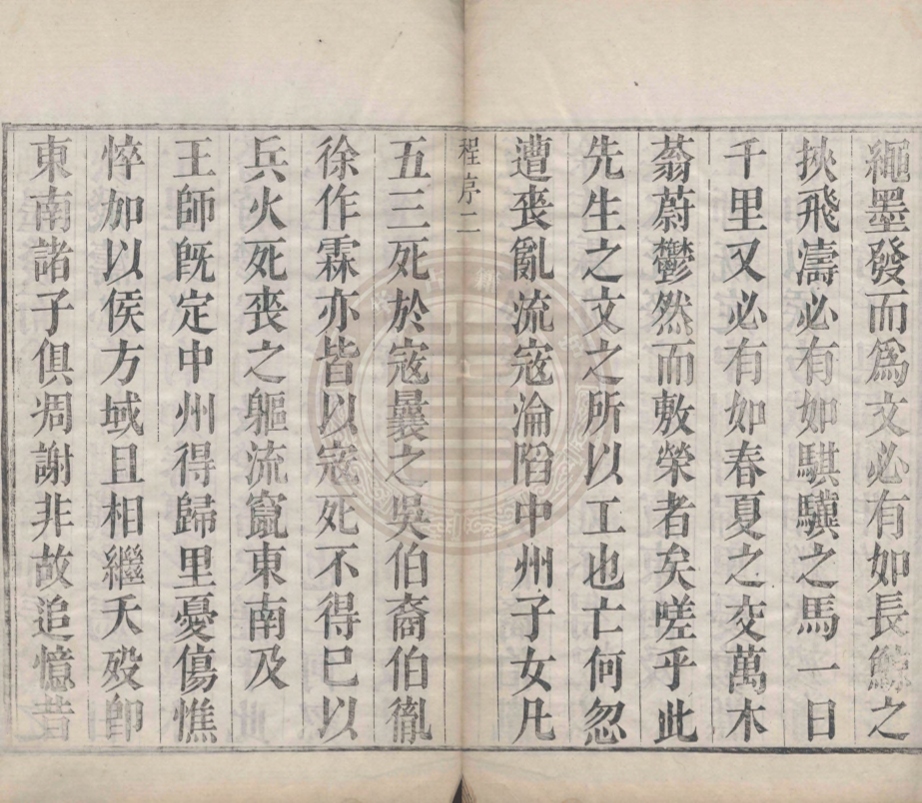 繩墨發而爲文必有如長鯨之
挾飛濤必有如騏驥之馬一日
千里又必有如春夏之交萬木
蓊蔚鬱然而敷榮者矣嗟乎此
先生之文之所以工也亡何忽
遭喪亂流寇淪陷中州子女凡
程序二
五三死於寇曩之吳伯裔伯胤
徐作霖亦皆以寇死不得已以
兵火死喪之軀流竄東南及
王師旣定中州得歸里憂傷憔
悴加以侯方域且相繼夭歿卽
東南諸子俱凋謝非故追憶昔